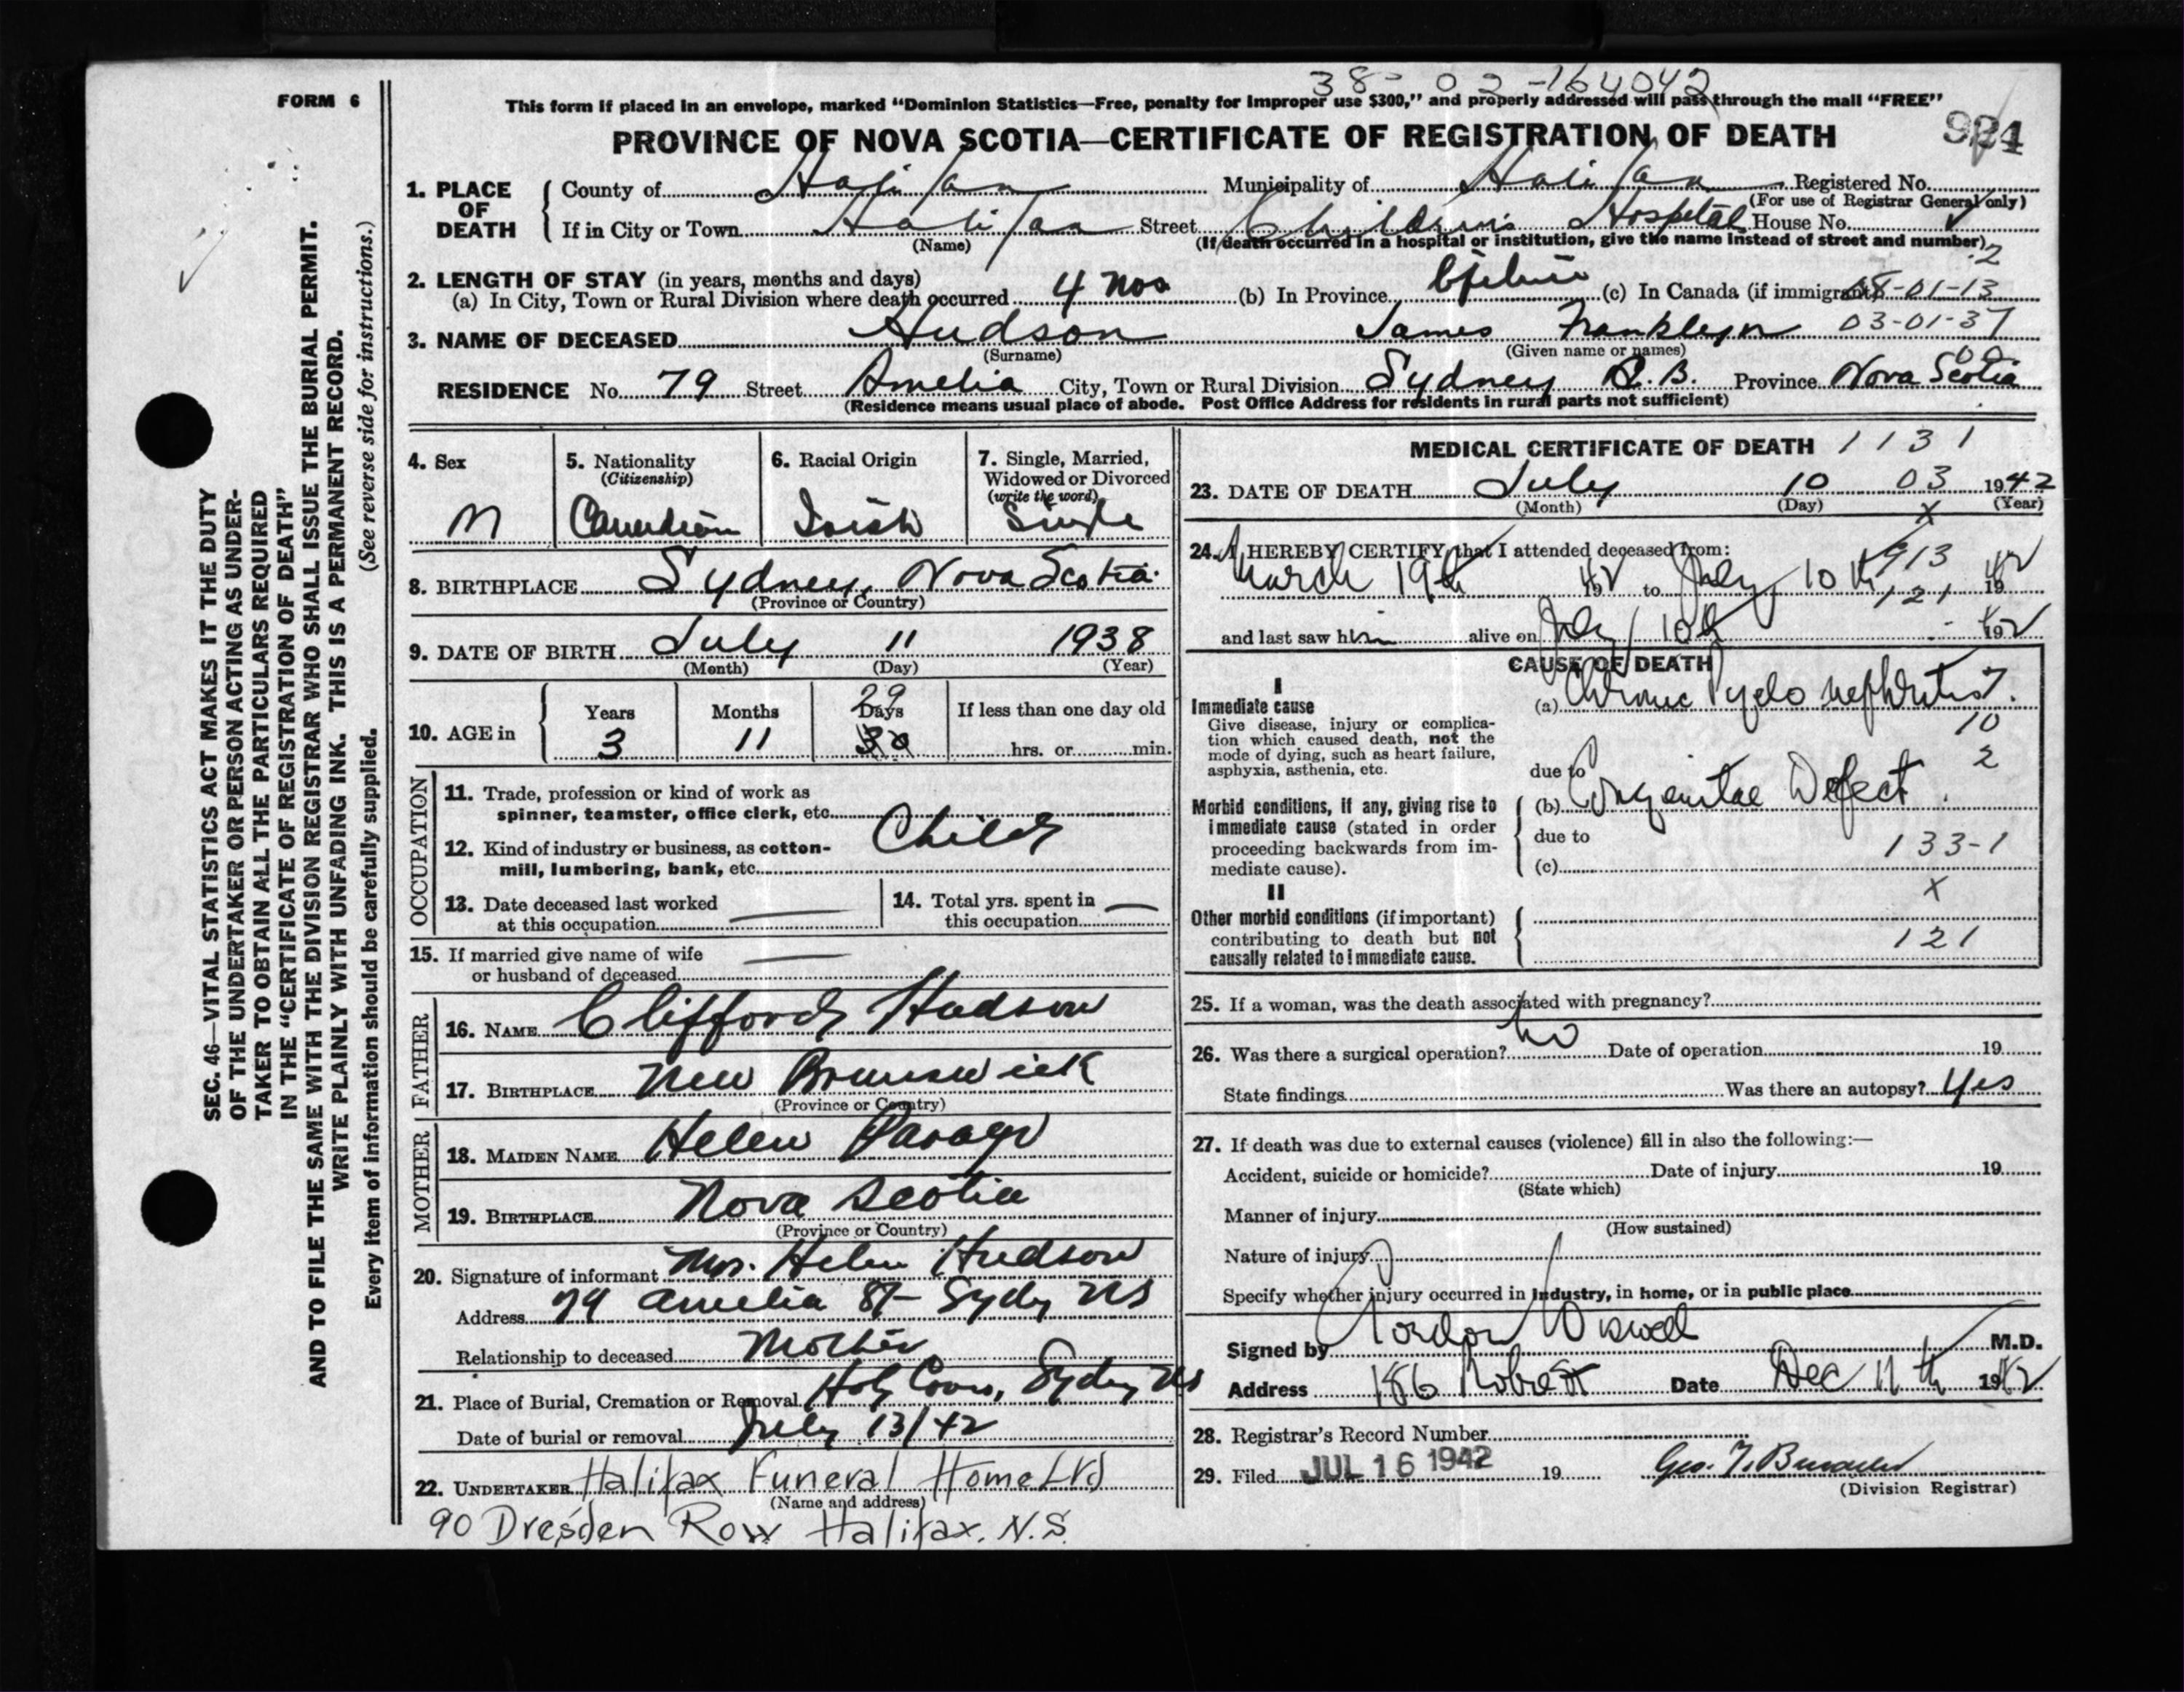 38- 02 -164042
FORM 6
This form if placed in an envelope, marked "Dominion Statistics—Free, penalty for improper use $300," and properly addressed will pass through the mail "FREE"
PROVINCE OF NOVA SCOTIA—CERTIFICATE OF REGISTRATION OF DEATH
924
1. PLACE OF DEATH
County of Halifax Municipality of Halifax Registered No.
(For use of Registrar General only)
If in City or Town Halifax Street Children's Hospital House No.
(Name) (If death occurred in a hospital or institution, give the name instead of street and number)
2. LENGTH OF STAY (in years, months and days)
(a) In City, Town or Rural Division where death occurred 4 mos (b) In Province (c) In Canada (if immigrant) -01-13
3. NAME OF DECEASED Hudson James Franklyn 03-01-37
(Surname) (Given name or names)
RESIDENCE No. 79 Street Amelia City, Town or Rural Division Sydney C.B. Province Nova Scotia
(Residence means usual place of abode. Post Office Address for residents in rural parts not sufficient)
4. Sex
M
5. Nationality
(Citizenship)
Canadian
6. Racial Origin
Irish
7. Single, Married,
Widowed or Divorced
(write the word)
Single
8. BIRTHPLACE Sydney, Nova Scotia
(Province or Country)
9. DATE OF BIRTH July 11 1938
(Month) (Day) (Year)
10. AGE in
Years Months Days If less than one day old
3 11 29 30 hrs. or min.
OCCUPATION
11. Trade, profession or kind of work as
spinner, teamster, office clerk, etc.
Child
12. Kind of industry or business, as cotton-
mill, lumbering, bank, etc.
13. Date deceased last worked
at this occupation
14. Total yrs. spent in
this occupation
15. If married give name of wife
or husband of deceased
FATHER
16. NAME Clifford Hudson
17. BIRTHPLACE New Brunswick
(Province or Country)
MOTHER
18. MAIDEN NAME Helen
19. BIRTHPLACE Nova Scotia
(Province or Country)
20. Signature of informant Mrs. Helen Hudson
Address 79 Amelia St- Sydy NS
Relationship to deceased Mother
21. Place of Burial, Cremation or Removal Holy Cross, Sydney NS
Date of burial or removal July 13/42
22. UNDERTAKER Halifax Funeral Home Ltd
(Name and address)
90 Dresden Row Halifax. N.S.
MEDICAL CERTIFICATE OF DEATH 1131
23. DATE OF DEATH July 10 03 1942
(Month) (Day) (Year)
X
24. I HEREBY CERTIFY that I attended deceased from:
913
March 19th 1942 to July 10th 1942
121
and last saw him alive on July 10th 1942
CAUSE OF DEATH
I
Immediate cause
Give disease, injury or complica-
tion which caused death, not the
mode of dying, such as heart failure,
asphyxia, asthenia, etc.
(a) Chronic Pyelo nephritis 7.
10
2
due to
Morbid conditions, if any, giving rise to
immediate cause (stated in order
proceeding backwards from im-
mediate cause).
(b) Congenital Defect.
due to
133-1
(c)
X
II
Other morbid conditions (if important)
contributing to death but not
causally related to immediate cause.
121
25. If a woman, was the death associated with pregnancy?
26. Was there a surgical operation? No Date of operation 19
State findings Was there an autopsy? Yes
27. If death was due to external causes (violence) fill in also the following:—
Accident, suicide or homicide? Date of injury 19
(State which)
Manner of injury
(How sustained)
Nature of injury
Specify whether injury occurred in industry, in home, or in public place
Signed by Gordon Wiswell M.D.
Address 186 Robie St Date Dec 11th 1942
28. Registrar's Record Number
29. Filed JUL 16 1942 19 Geo.
(Division Registrar)
SEC. 46—VITAL STATISTICS ACT MAKES IT THE DUTY
OF THE UNDERTAKER OR PERSON ACTING AS UNDER-
TAKER TO OBTAIN ALL THE PARTICULARS REQUIRED
IN THE "CERTIFICATE OF REGISTRATION OF DEATH"
AND TO FILE THE SAME WITH THE DIVISION REGISTRAR WHO SHALL ISSUE THE BURIAL PERMIT.
WRITE PLAINLY WITH UNFADING INK. THIS IS A PERMANENT RECORD.
Every item of information should be carefully supplied. (See reverse side for instructions.)